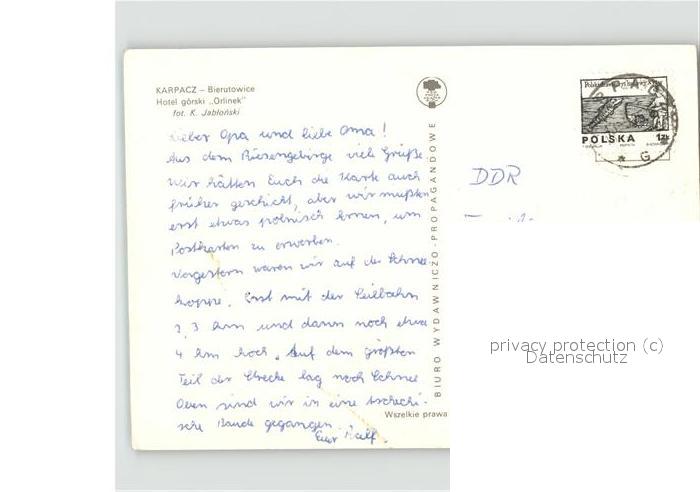 KARPACZ – Bierutowice
Hotel górski „Orlinek"
fot. K. Jabłoński
Lieber Opa und liebe Oma!
Aus dem Riesengebirge viele Grüße
wir hätten Euch die Karte auch
früher geschickt, aber wir mußten
erst etwas polnisch lernen, um
Postkarten zu erwerben.
Vorgestern waren wir auf der Schnee-
koppe. Erst mit der Seilbahn
2,3 km und dann noch etwa
4 km hoch. Auf dem größten
Teil der Strecke lag noch Schnee
Oben sind wir in eine tschechi-
sche Baude gegangen.
Euer Ralf.
BIURO WYDAWNICZO-PROPAGANDOWE
Wszelkie prawa
POLSKA 1zł
G
DDR
privacy protection (c)
Datenschutz